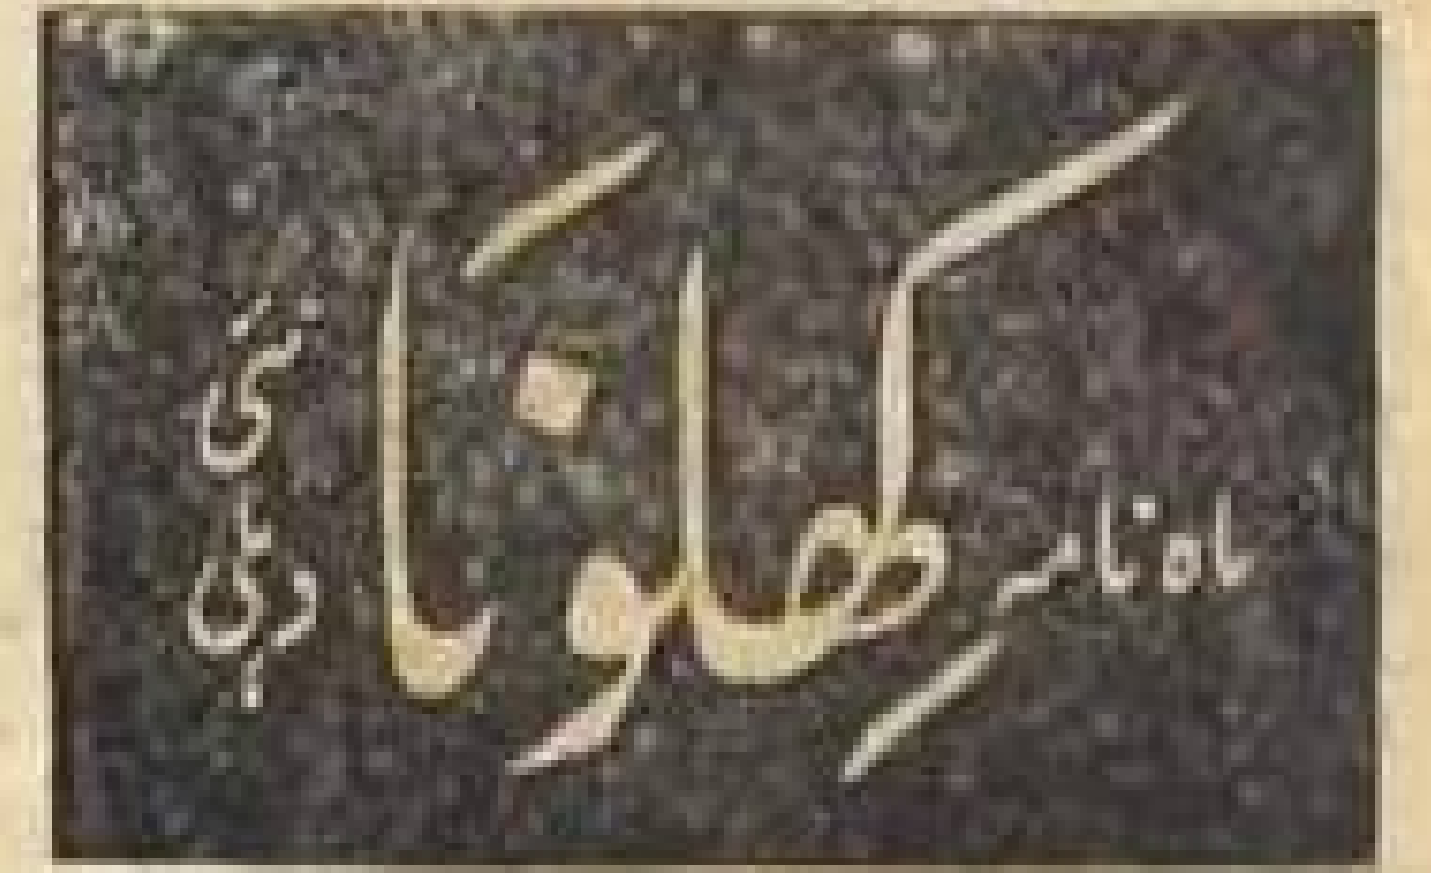 ماہ نامہ
کِھلَونا
نئی
دہلی